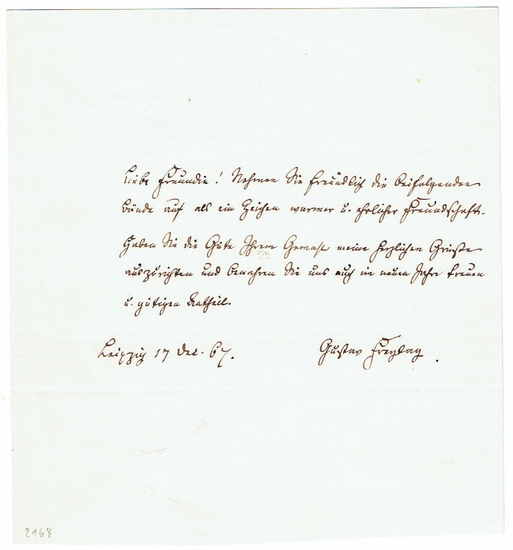 Liebe Freundin! Nehmen Sie freundlich die beifolgenden
Bände auf als ein Zeichen warmer u. ehrlicher Freundschaft.
Haben Sie die Güte Ihrem Gemahl meine herzlichen Grüße
auszurichten und bewahren Sie uns auch im neuen Jahre treuen
u. gütigen Antheil.
Leipzig 17 Dec. 67. Gustav Freytag.
2168